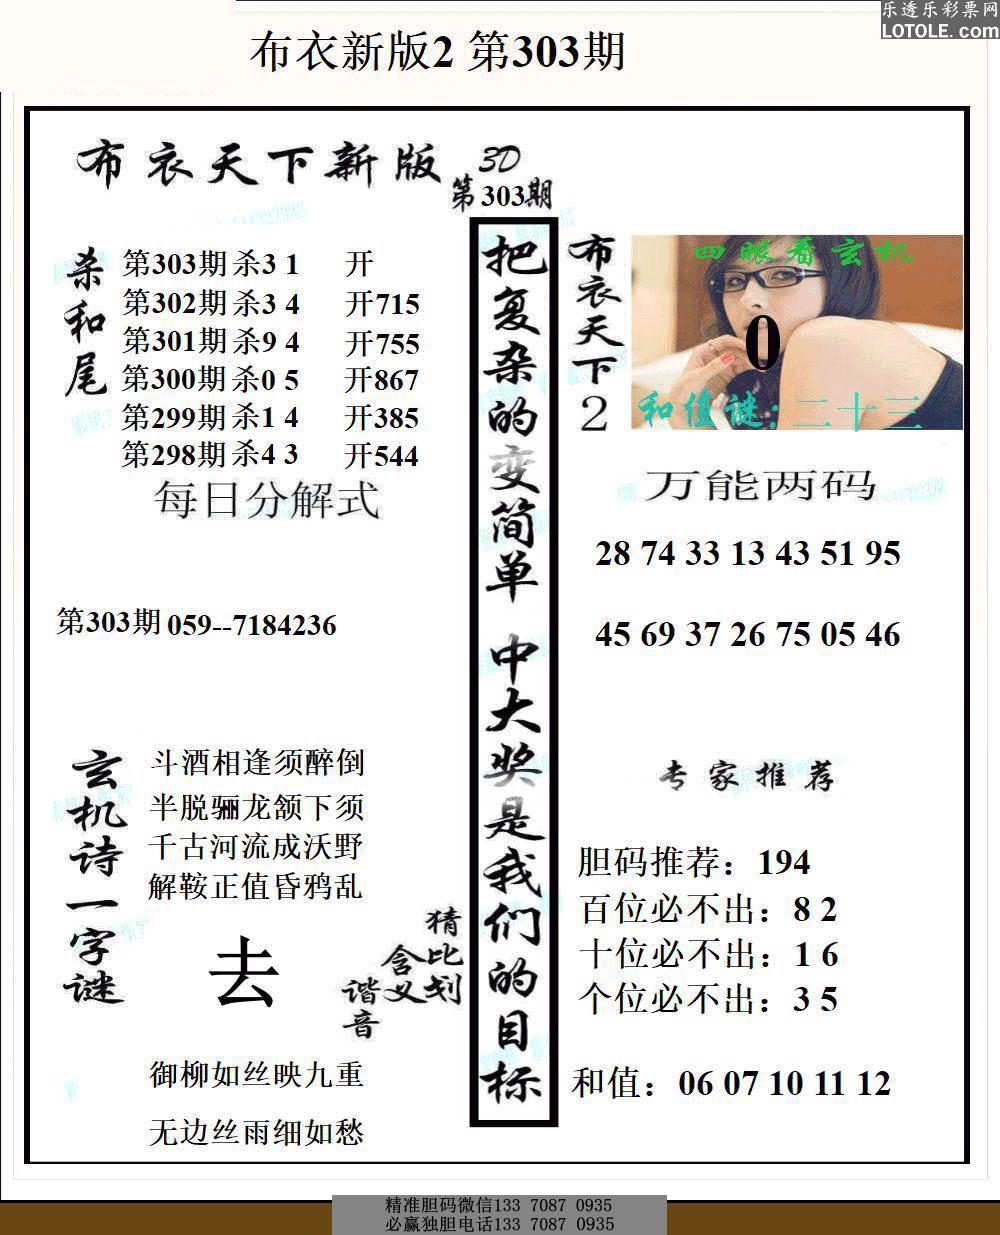 乐透乐彩票网
LOTOLE.com
布衣新版2 第303期
布衣天下新版 3D
第303期
杀和尾
第303期 杀3 1 开
第302期 杀3 4 开715
第301期 杀9 4 开755
第300期 杀0 5 开867
第299期 杀1 4 开385
第298期 杀4 3 开544
每日分解式
第303期 059--7184236
玄机诗一字谜
斗酒相逢须醉倒
半脱骊龙颔下须
千古河流成沃野
解鞍正值昏鸦乱
去
猜比划
含义
谐音
御柳如丝映九重
无边丝雨细如愁
把复杂的变简单 中大奖是我们的目标
布衣天下2
四眼看玄机
0
和值谜:二十三
万能两码
28 74 33 13 43 51 95
45 69 37 26 75 05 46
专家推荐
胆码推荐：194
百位必不出：8 2
十位必不出：1 6
个位必不出：3 5
和值：06 07 10 11 12
精准胆码微信133 7087 0935
必赢独胆电话133 7087 0935